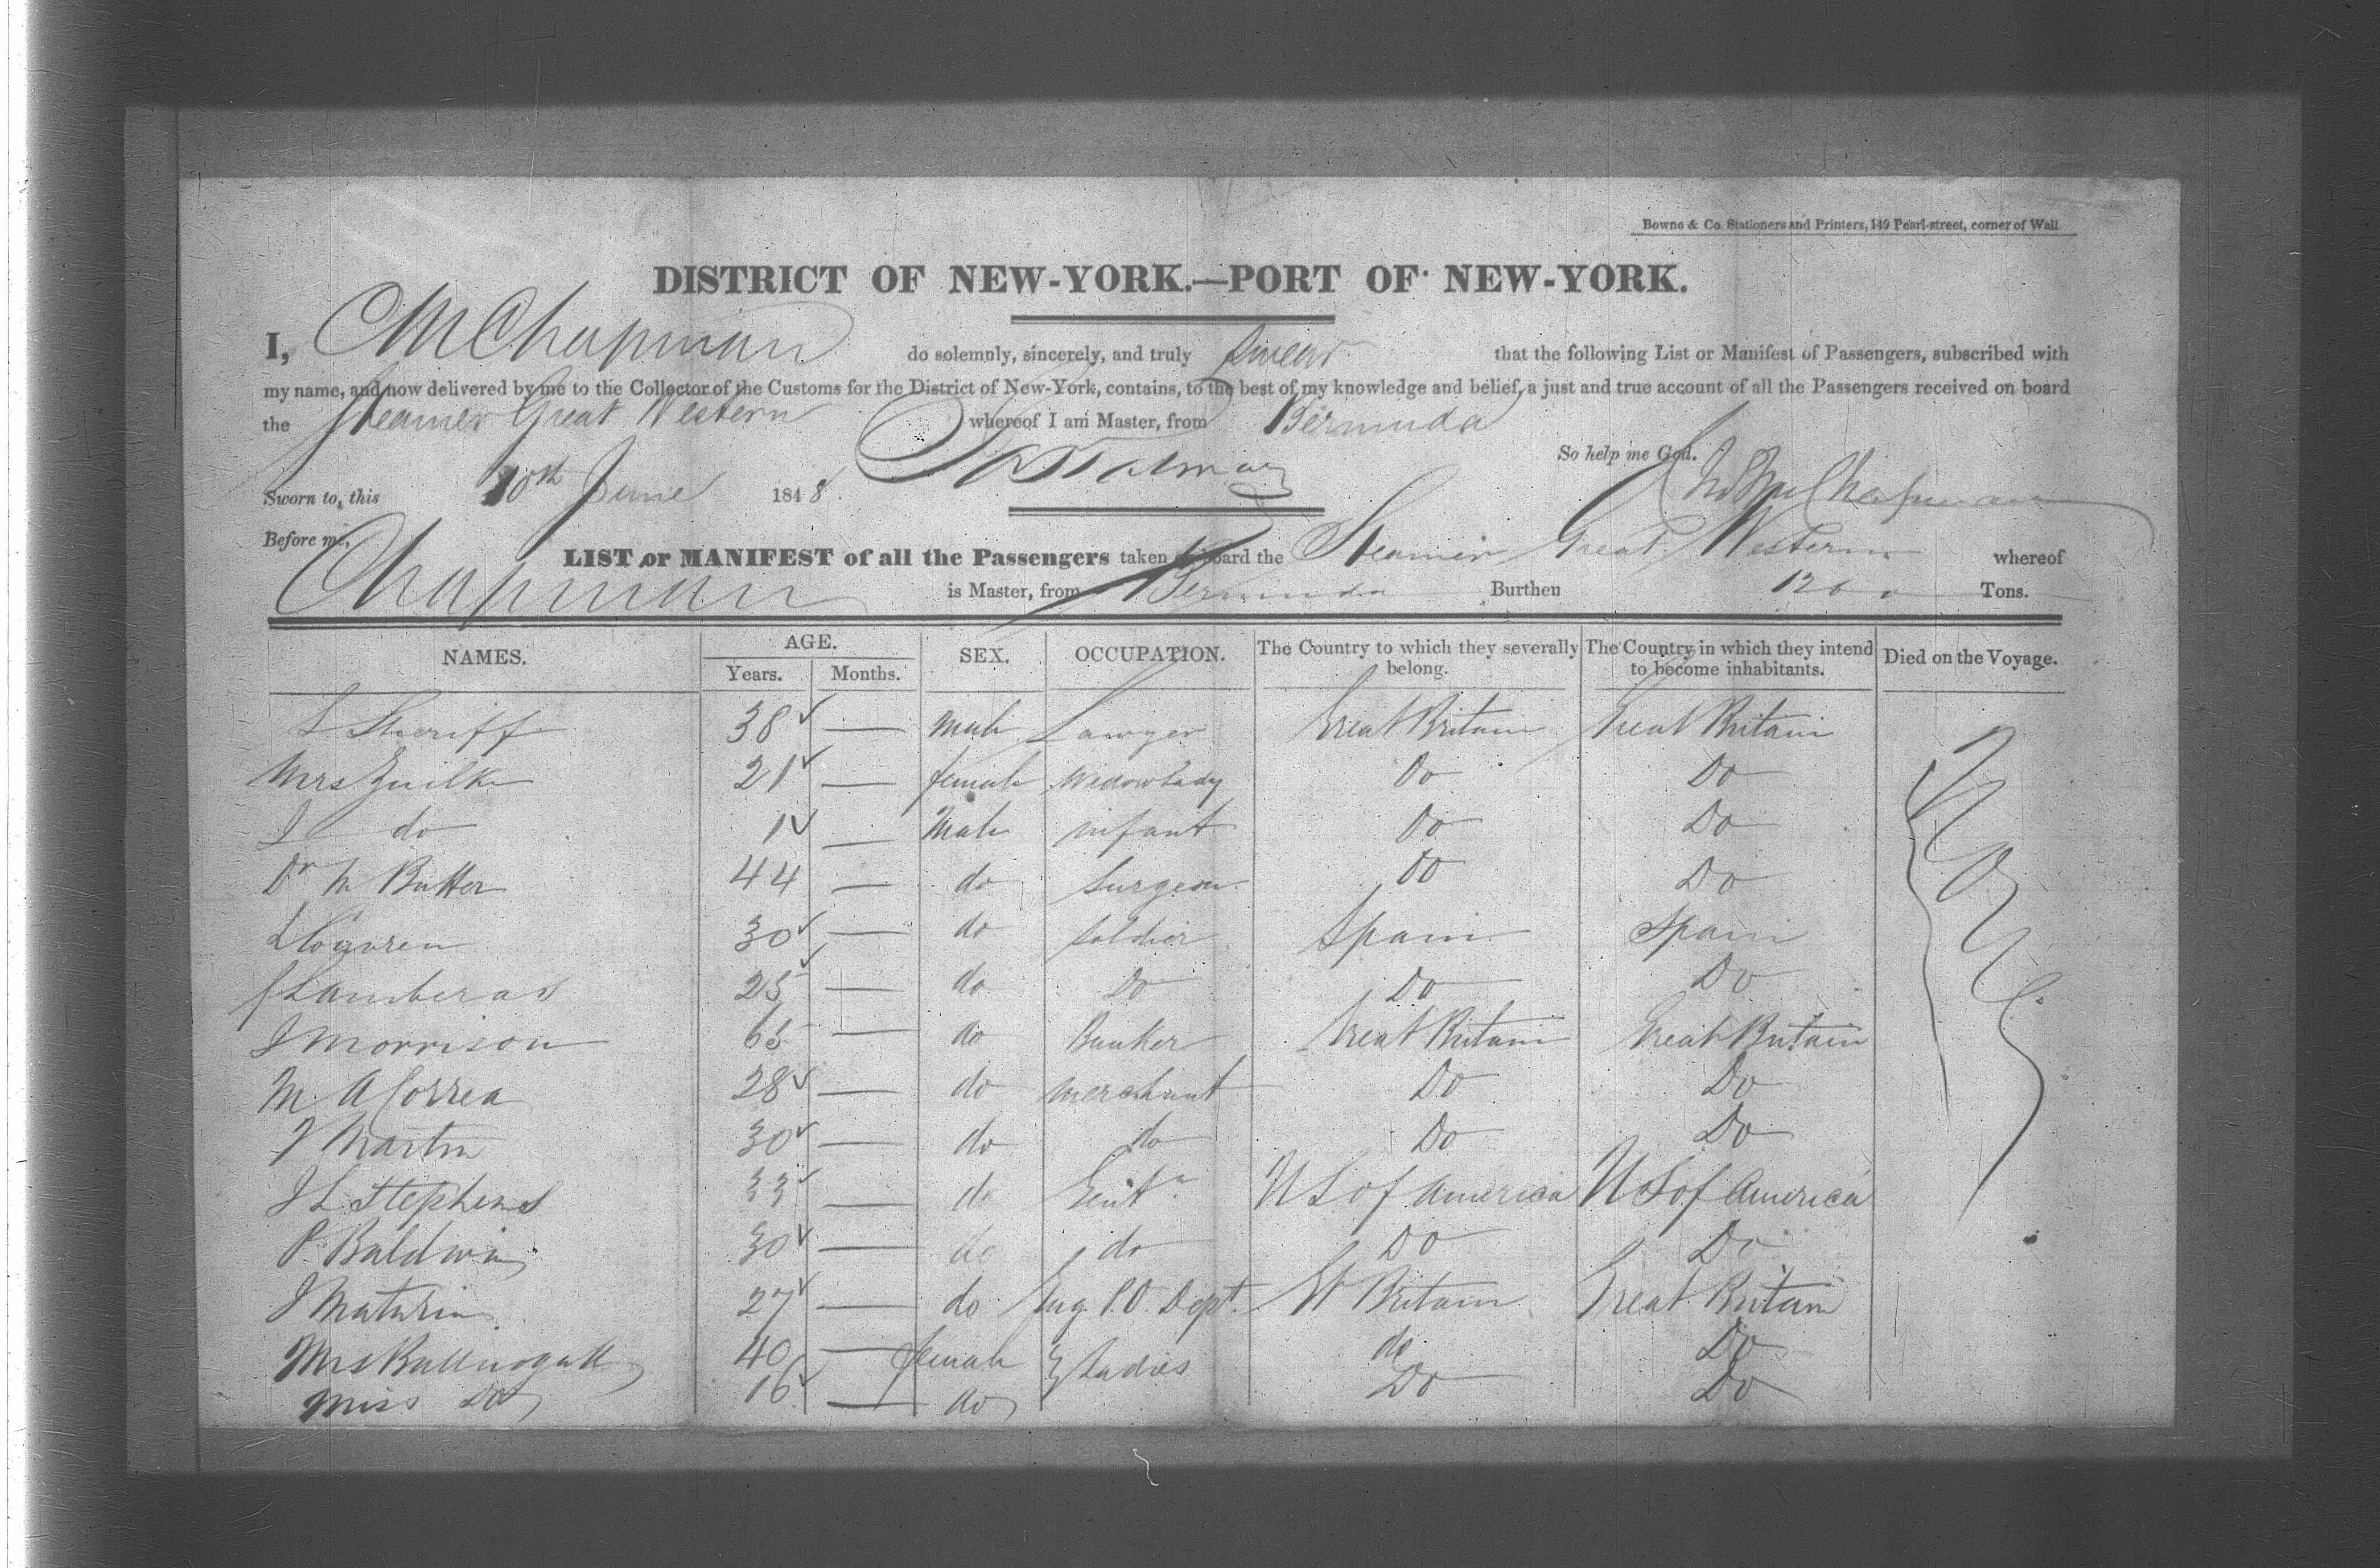 Bowne & Co. Stationers and Printers, 149 Pearl-street, corner of Wall.
DISTRICT OF NEW-YORK.—PORT OF NEW-YORK.
I, Chapman do solemnly, sincerely, and truly swear that the following List or Manifest of Passengers, subscribed with
my name, and now delivered by me to the Collector of the Customs for the District of New-York, contains, to the best of my knowledge and belief, a just and true account of all the Passengers received on board
the Steamer Great Western whereof I am Master, from Bermuda
So help me God.
Sworn to, this 10th June 1848. Chapman
Before me,
LIST or MANIFEST of all the Passengers taken on board the Steamer Great Western whereof
Chapman is Master, from Bermuda Burthen Tons.
NAMES. AGE. Years. Months. SEX. OCCUPATION. The Country to which they severally belong. The Country in which they intend to become inhabitants. Died on the Voyage.
Sheriff 38 — Male Lawyer Great Britain Great Britain
Mrs 21 — female Widow Lady Do Do
J do 1 — Male infant Do Do
Dr 44 — do Surgeon Do Do
30 — do Soldier Spain Spain
25 — do Do Do Do
J Morrison 65 — do Banker Great Britain Great Britain
M A Correa 28 — do Merchant Do Do
Martin 30 — do do Do Do
J L Stephens 33 — do Gentn U S of America U S of America
P Baldwin 30 — do do Do Do
J Maturin 27 — do P.O. Dept. Gt Britain Great Britain
Mrs 40 — female Ladies do Do
Miss Do 16 — do Do Do